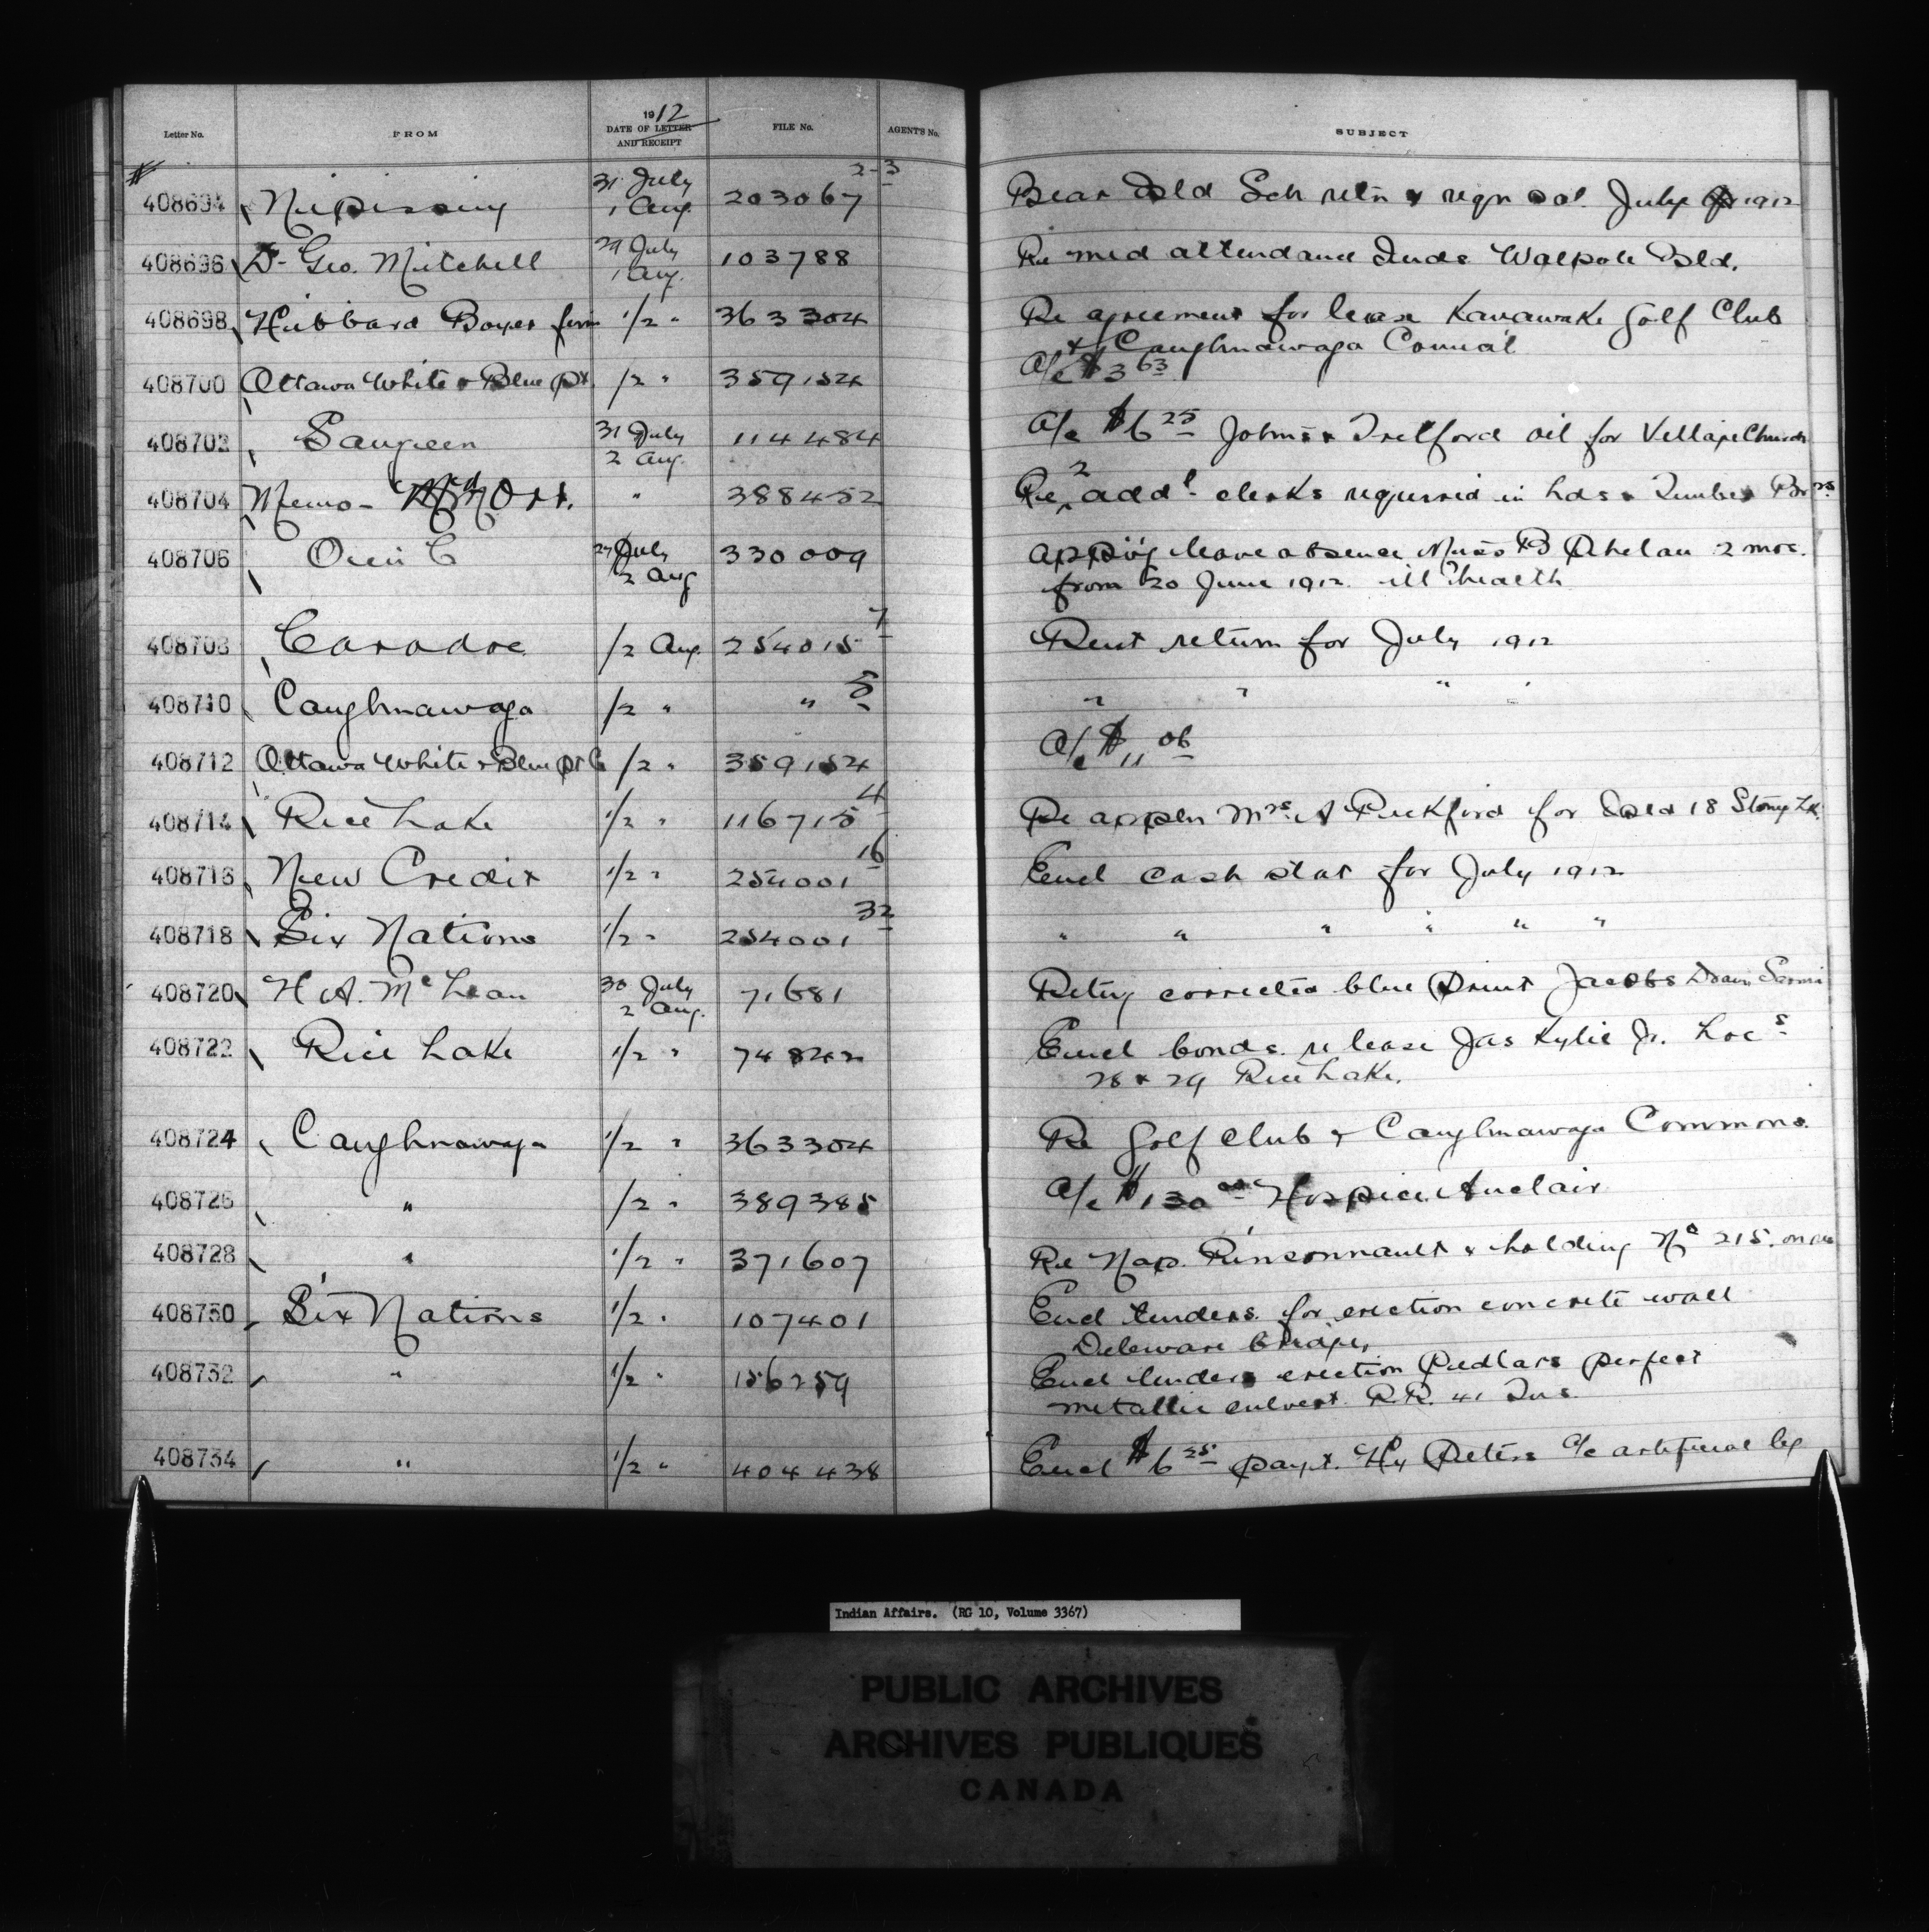 Letter No. FROM 1912 DATE OF LETTER AND RECEIPT FILE No. AGENT'S No. SUBJECT
408694 Nipissing 31 July 1 Aug. 203067 2-3 Bear Isld Sch retn & reqn sal. July 1912
408696 Dr Geo. Mitchell 29 July 1 Aug. 103788 Re med attendance Inds Walpole Isld.
408698 Hibbard Boyer firm 1/2 " 363304 Re agreement for lease Kanawake Golf Club
& Caughnawaga Council
408700 Ottawa White & Blue Pt /2 " 359154 A/c $3 63
408702 Saugeen 31 July 2 Aug. 114484 A/c $6 25 Telford oil for Village Church
408704 Memo - Orr. " 388452 Re 2 addl clerks required in Lds & Timber Brs
408706 27 July 2 Aug 330009 appg leave absence Miss B Phelan 2 mos.
from 20 June 1912 ill health
408708 Caradoc /2 Aug. 254015 7 Rent return for July 1912
408710 Caughnawaga /2 " " 5 " " " "
408712 Ottawa White & Blue Pt C /2 " 359154 A/c $11 06
408714 Rice Lake 1/2 " 116715 4 Re appln Mrs A Pickford for Isld 18 Stony Lk.
408716 New Credit 1/2 " 254001 16 Encl cash stat for July 1912
408718 Six Nations 1/2 " 254001 32 " " " " " "
408720 H A. McLean 30 July 2 Aug. 71681 Retg corrected blue print Jacobs Drain Sarnia
408722 Rice Lake 1/2 " 74842 Encl bonds re lease Jas Kylie Jr. Locs
28 & 29 Rice Lake.
408724 Caughnawaga 1/2 " 363304 Re Golf Club & Caughnawaga Commons.
408726 " /2 " 389385 A/c $130 00 Hospice Auclair
408728 " 1/2 " 371607 Re Nap. Pinsonnault & holding No 215. on res
408730 Six Nations 1/2 " 107401 Encl tenders for erection concrete wall
Deleware bridge,
408732 " 1/2 " 156259 Encl tenders erection Pedlars perfect
metallic culvert R.R. 41 Tus.
408734 " 1/2 " 404438 Encl $6 25 payt. Hy Peters a/c artificial leg
Indian Affairs. (RG 10, Volume 3367)
PUBLIC ARCHIVES
ARCHIVES PUBLIQUES
CANADA